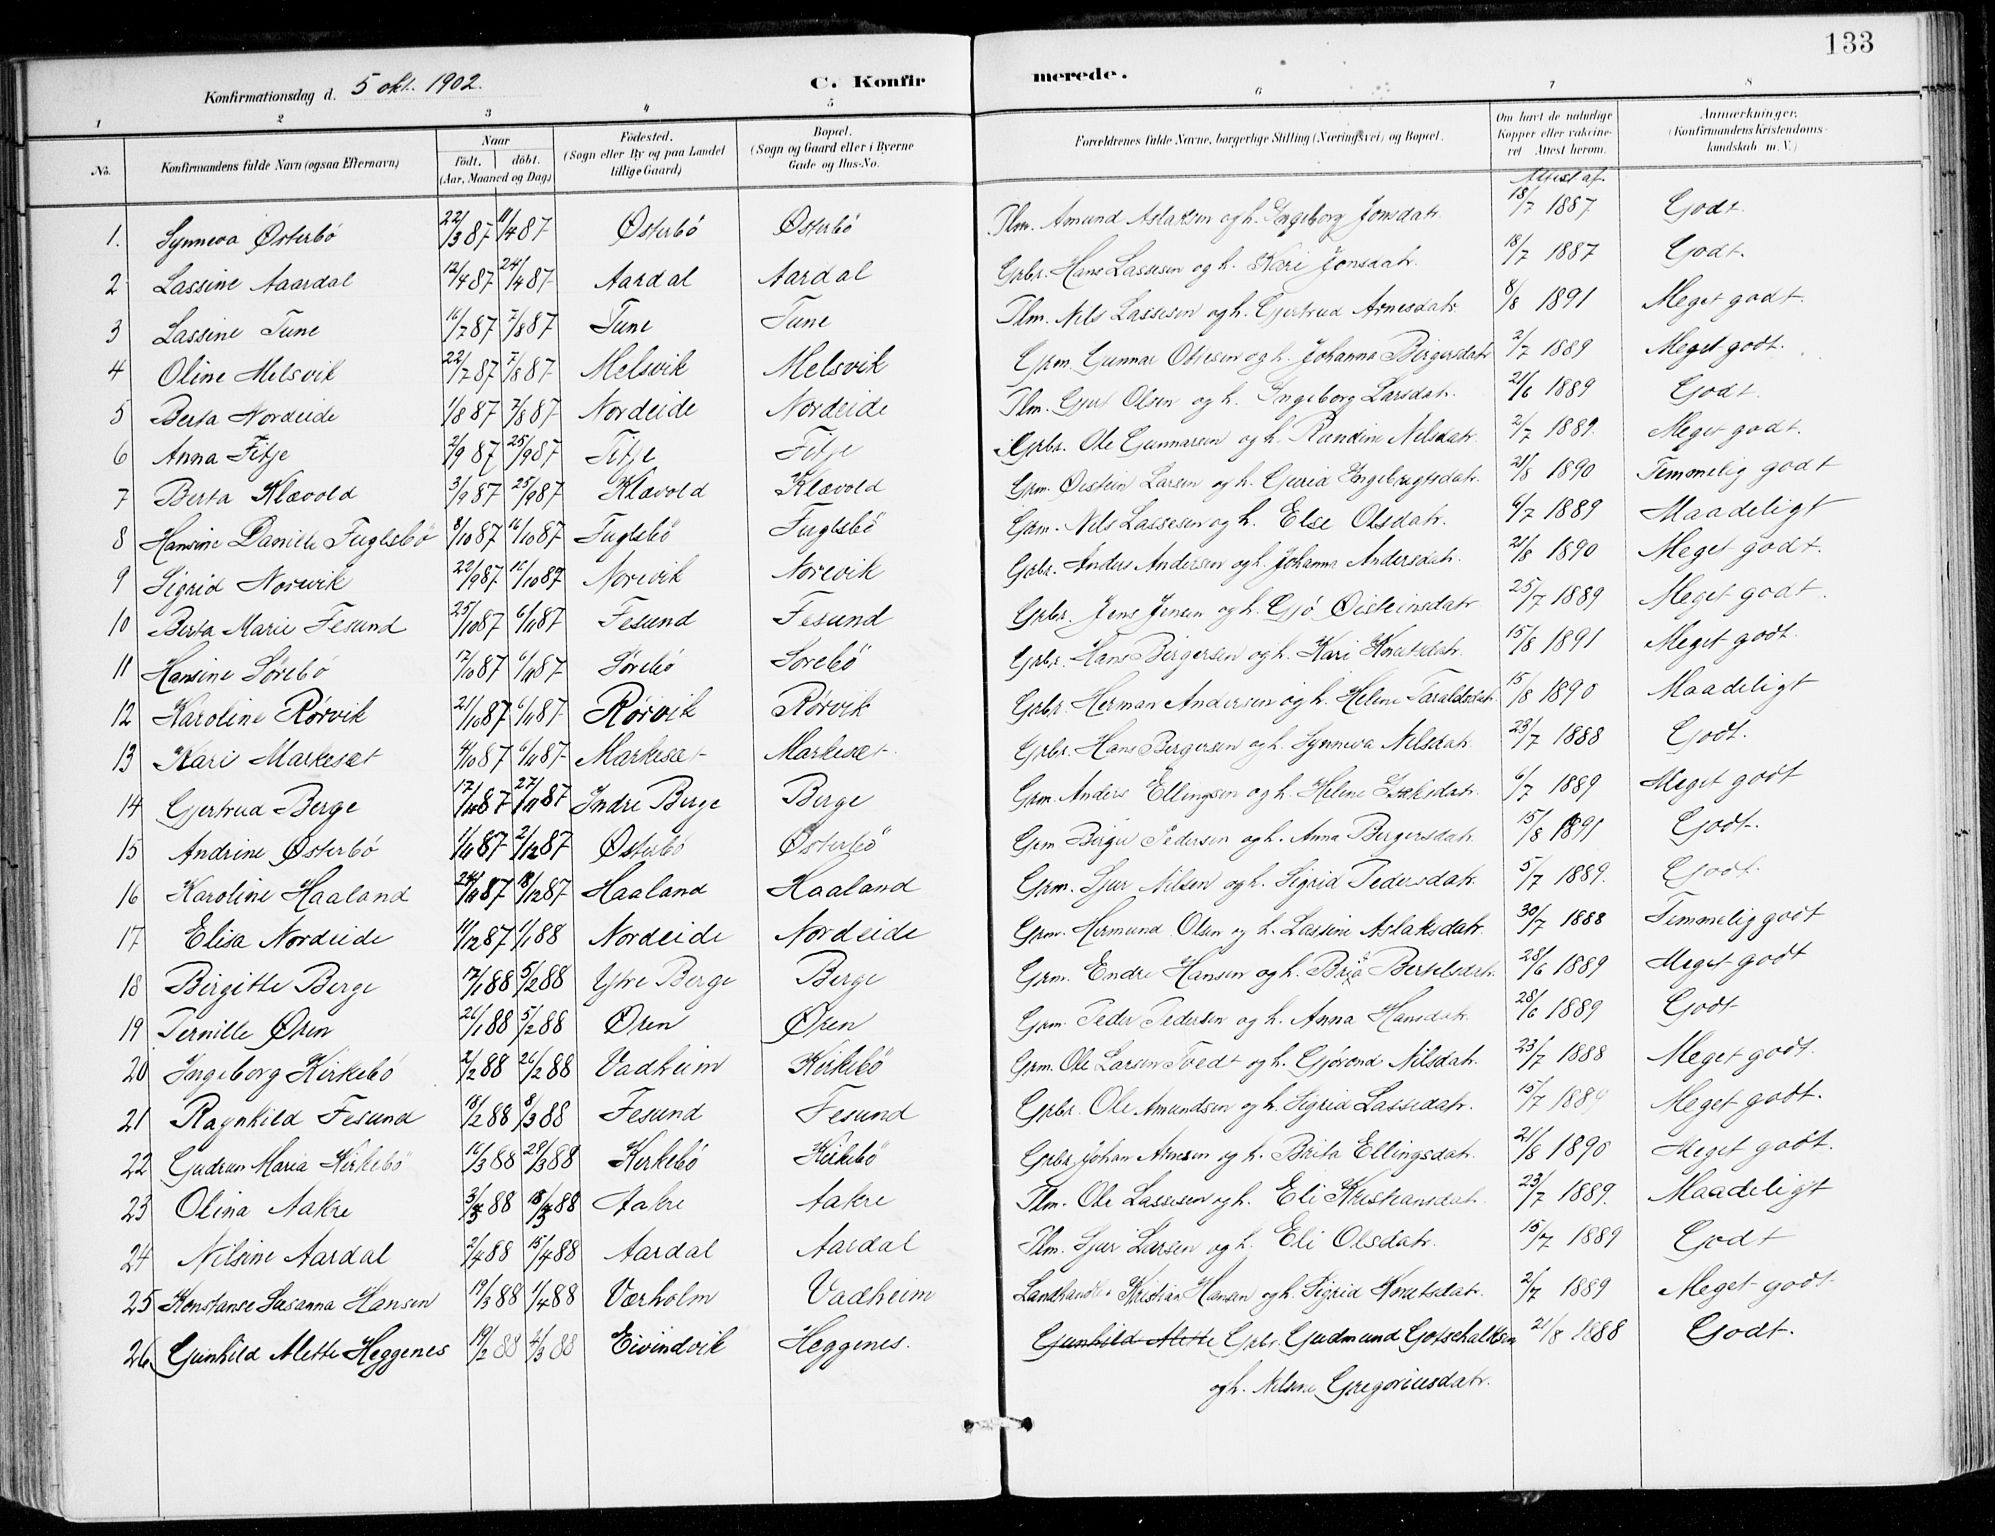 133
Konfirmationsdag d. 5 okt. 1902.
C. Konfirmerede.
1 2 3 4 5 6 7 8
No. Konfirmandens fulde Navn (ogsaa Efternavn) Naar födt. döbt. (Aar, Maaned og Dag) Födested. (Sogn eller By og paa Landet tillige Gaard) Bopæl. (Sogn og Gaard eller i Byerne Gade og Hus-No. Forældrenes fulde Navne, borgerlige Stilling (Næringsvei) og Bopæl. Om havt de naturlige Kopper eller vakcineret. Attest herom. Anmærkninger. (Konfirmandens Kristendomskundskab m. V.)
Attest af.
1. Synneva Østerbö 22/3 87 11/4 87 Østerbö Østerbö Plm. Amund Aslaksen og h. Ingeborg Jonsdatr. 18/7 1887 Godt.
2 Lassine Aardal 12/4 87 24/4 87 Aardal Aardal Grbr. Hans Lassesen og h. Kari Jonsdatr. 18/7 1887 Godt.
3 Lassine Tune 16/7 87 7/8 87 Tune Tune Plm. Nils Lassesen og h. Gjertrud Arnesdatr. 8/8 1891 Meget godt.
4 Oline Melsvik 22/7 87 7/8 87 Melsvik Melsvik Grm. Gunnar Olsesen og h. Johanna Birgersdatr 2/7 1889 Meget godt.
5 Berta Nordeide 1/8 87 7/8 87 Nordeide Nordeide Plm. Gjert Olsen og h. Ingeborg Larsdatr. 21/6 1889 Godt.
6 Anna Fitje 2/9 87 25/9 87 Fitje Fitje Grbr. Ole Gunnarsen og h. Rundine Nilsdatr. 2/7 1889. Meget godt.
7 Berta Klævold 3/9 87 25/9 87 Klævold Klævold Grm. Øistein Larsen og h. Guria Ingebrigtsdatr. 21/8 1890 Temmelig godt
8 Hansine Danielle Fuglsbö 8/10 87 16/10 87 Fuglsbö Fuglsbö Grm. Nils Lassesen og h. Else Olsdatr. 6/7 1889 Maadeligt
9 Sigrid Norevik 22/9 87 16/10 87 Norevik Norevik Grbr. Anders Andersen og h. Johanna Andersdatr. 21/8 1890 Meget godt.
10 Berta Marie Fesund 25/10 87 6/11 87 Fesund Fesund Grbr. Jens Jensen og h. Gjö Øisteinsdatr 25/7 1889 Meget godt.
11 Hansine Sörebö 17/10 87 6/11 87 Sörebö Sörebö Grbr. Hans Birgersen og h. Kari Knutsdatr. 15/8 1891 Meget godt.
12 Karoline Rørvik 21/10 87 6/11 87 Rørvik Rørvik Grbr. Herman Andersen og h. Helene Taraldsdatr. 15/8 1890 Maadeligt
13 Kari Markesæt 4/10 87 6/11 87 Markesæt Markesæt. Grbr. Hans Bergersen og h. Synneva Nilsdatr. 23/7 1888 Godt.
14 Gjertrud Berge 17/11 87 27/11 87 Indre Berge Berge Grm. Anders Ellingsen og h. Helene Isaksdatr. 6/7 1889 Meget godt
15 Andrine Østerbö 1/11 87 2/12 87 Østerbö Østerbö Grm Birger Pedersen og h. Anna Bergersdatr. 15/8 1891 Godt.
16 Karoline Haaland 24/11 87 18/12 87 Haaland Haaland Grm. Sjur Nilsen og h. Sigrid Pedersdatr. 5/7 1889. Godt.
17 Elisa Nordeide 11/12 87 1/1 88 Nordeide Nordeide Grm. Hermund Olsen og h. Lassine Aslaksdatr. 30/7 1888 Temmelig godt
18 Birgitte Berge 17/1 88 5/2 88 Ytre Berge Berge Grm. Endre Hansen og h. Bertelsdatr. 28/6 1889 Meget godt
19 Pernille Øren 26/1 88 5/2 88 Øren Øren Grm. Peder Pedersen og h. Anna Hansdatr. 28/6 1889 Godt
20 Ingeborg Kirkebö 2/2 88 26/2 88 Vadheim Kirkebö Grm. Ole Larsen Tvedt og h. Gjörond Nilsdatr. 23/7 1888 Meget godt.
21 Ragnhild Fesund 18/2 88 8/3 88 Fesund Fesund Grbr. Ole Amundsen og h. Sigrid Lassedatr. 15/7 1889 Meget godt.
22 Gudrun Maria Kirkebö 16/3 88 29/3 88 Kirkebö Kirkebö Grbr. Johan Arnesen og h. Brita Ellingsdatr. 21/8 1890 Meget godt.
23 Olina Aakre 3/3 88 18/3 88 Aakre Aakre Plm. Ole Lassesen og h. Eli Kristiansdatr. 23/7 1889. Maadeligt
24 Nilsine Aardal 2/4 88 15/4 88 Aardal Aardal Plm. Sjur Larsen og h. Eli Olsdatr. 15/7 1889 Godt
25 Konstanse Susanna Hansen 19/3 88 1/4 88 Værholm Vadheim Landhandler Kristian Hansen og h. Sigrid Knutsdatr. 2/7 1889 Meget godt.
26 Gunhild Alette Heggenes 19/2 88 4/3 88 Eivindvik Heggenes. Gunhild Alette Grbr. Gudmund Gotschalksen 21/8 1888 Godt.
og h. Nilsine Gregoriusdatr.